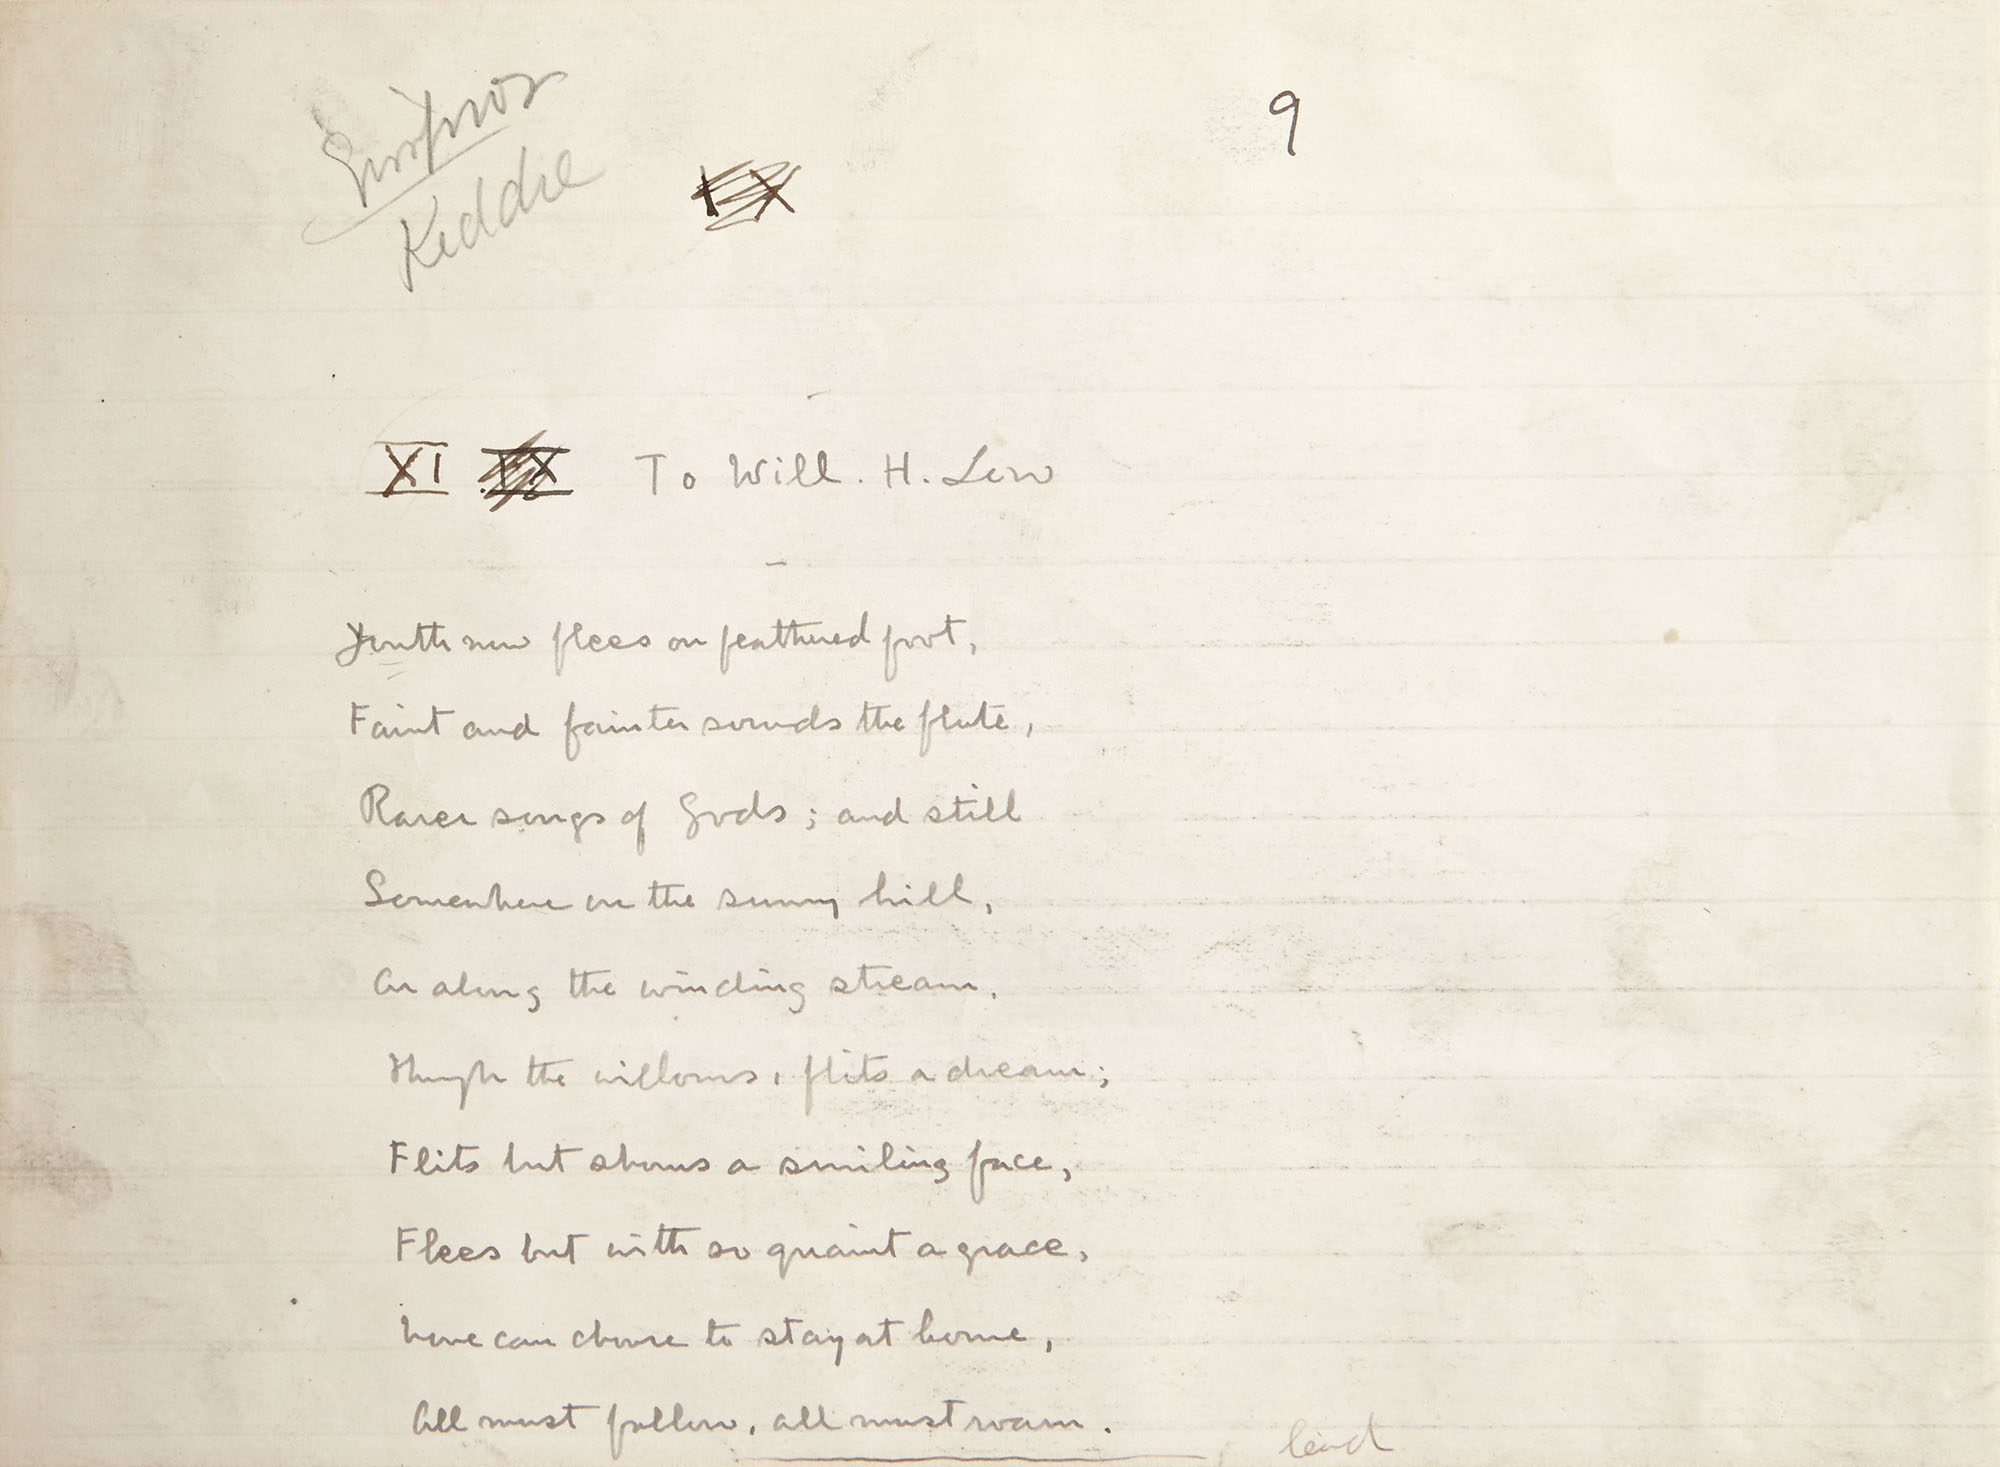 9
Keddie
IX
XI IX To Will. H. Low
Youth now flees on feathered foot,
Faint and fainter sounds the flute,
Rarer songs of Gods; and still
Somewhere on the sunny hill,
Or along the winding stream,
Through the willows, flits a dream;
Flits but shows a smiling face,
Flees but with so quaint a grace,
None can choose to stay at home,
All must follow, all must roam.
lead